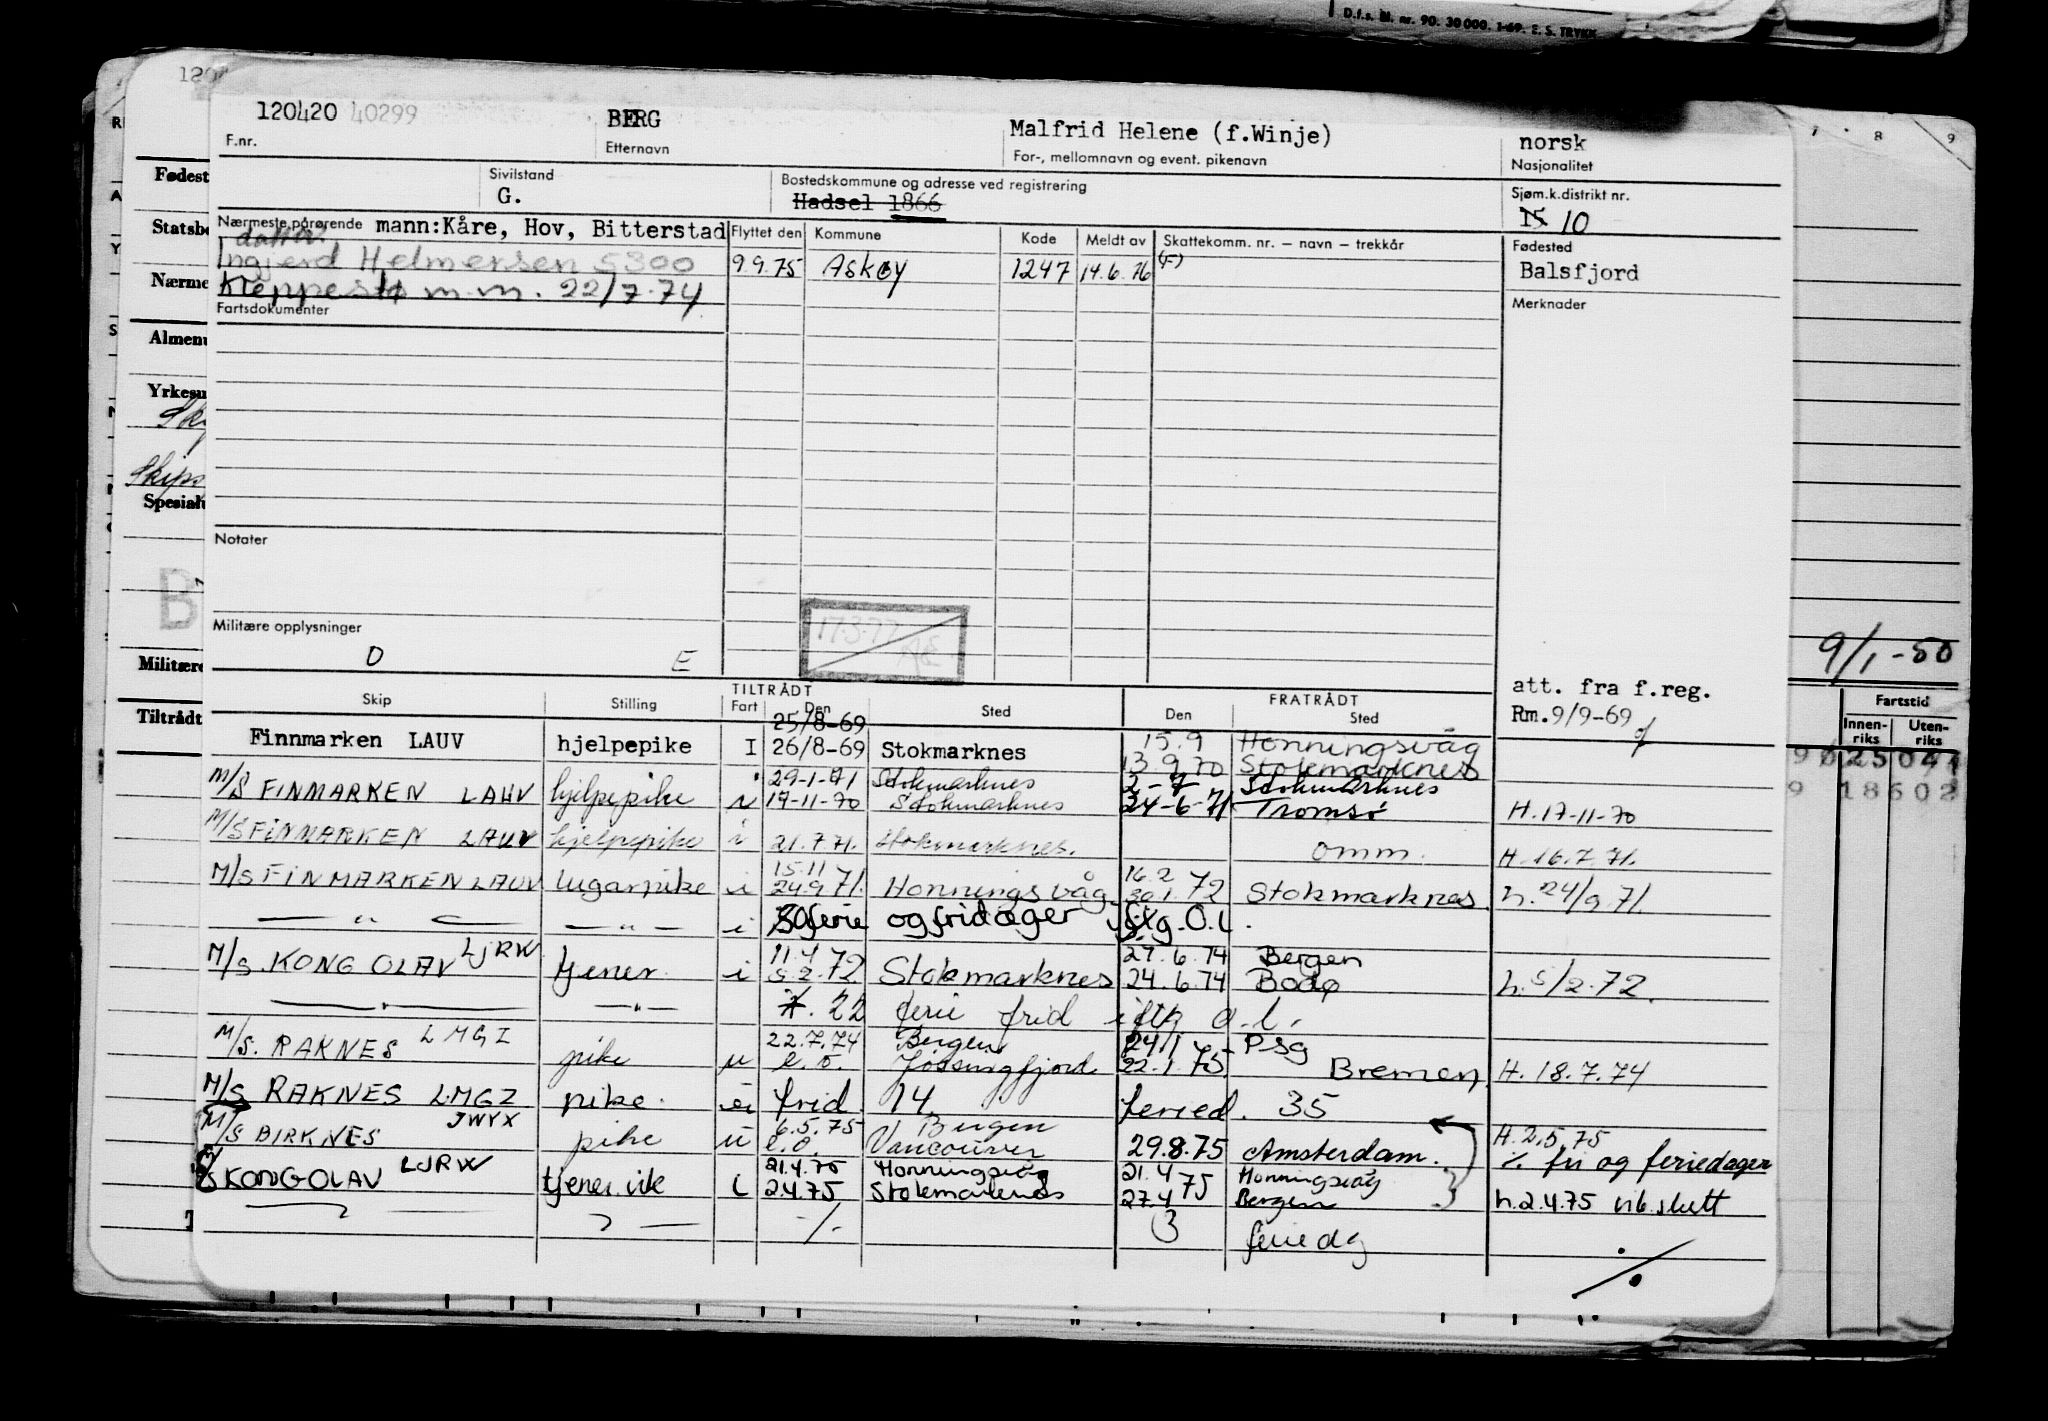 D.f.s. Bl. nr. 90. 30 000. 1-69. E. S. TRYKK
120420 40299 BERG Malfrid Helene (f.Winje) norsk
F.nr. Etternavn For-, mellomnavn og event. pikenavn Nasjonalitet
Sivilstand Bostedskommune og adresse ved registrering Sjøm.k.distrikt nr.
G. Hadsel 1866 10
Nærmeste pårørende mann:Kåre, Hov, Bitterstad Flyttet den Kommune Kode Meldt av Skattekomm. nr. – navn – trekkår Fødested
datter
Ingjerd Helmersen 5300 9.9.75 Askøy 1247 14.6.76 Balsfjord
Kleppestø m.m. 22/7.74
Fartsdokumenter Merknader
Notater
17.3.77
Militære opplysninger
O E
9/1-50
Skip Stilling TILTRÅDT FRATRÅDT att. fra f.reg.
Fart Den Sted Den Sted Rm.9/9-69
25/8-69 15.9 Honningsvåg
Finnmarken LAUV hjelpepike I 26/8-69 Stokmarknes 13.9.70 Stokmarknes
29-1-71 Stokmarknes 2-7 Stokmarknes
M/S FINMARKEN LAUV hjelpepike i 19-11-70 Stokmarknes 24-6-71 Tromsø H.17-11-70
M/S FINMARKEN LAUV hjelpepike i 21.7.71. Stokmarknes. omm. H.16.7.71.
15.11 16.2
M/S FINMARKEN LAUV lugarpike i 24.9 71. Honningsvåg 30.1 72 Stokmarknes. h.24/9 71.
— " — — " — i ferie og fridager
11.4 27.6.74 Bergen
M/S. KONG OLAV LJRW tjener i 5.2.72 Stokmarknes 24.6.74 Bodø h.5/2.72.
— " — — " — 22 ferie frid
22.7.74 Bergen 24/1 Psg
M/S. RAKNES LMGI pike u l.o. Jøssingfjord 22.1.75 Bremen H.18.7.74
M/S RAKNES LMGI pike. frid 14 feried. 35
6.5.75 Bergen H.2.5.75
M/S BIRKNES JWYX pike u l.o. Vancouver 29.8.75 Amsterdam. ./. fri og feriedager
21.4.75 Honningsvåg 21.4 Honningsvåg
KONG OLAV LJRW tjener vik i 2.4.75 Stokmarknes 27.4 75 Bergen h.2.4.75 vik.slutt
— " — ./. 3 feriedg
./.
Fødest
Statsbo
Nærme
Almenu
Yrkesu
Skips
Spesialu
Militære
Tiltrådt
Fartstid
Innen-riks Uten-riks